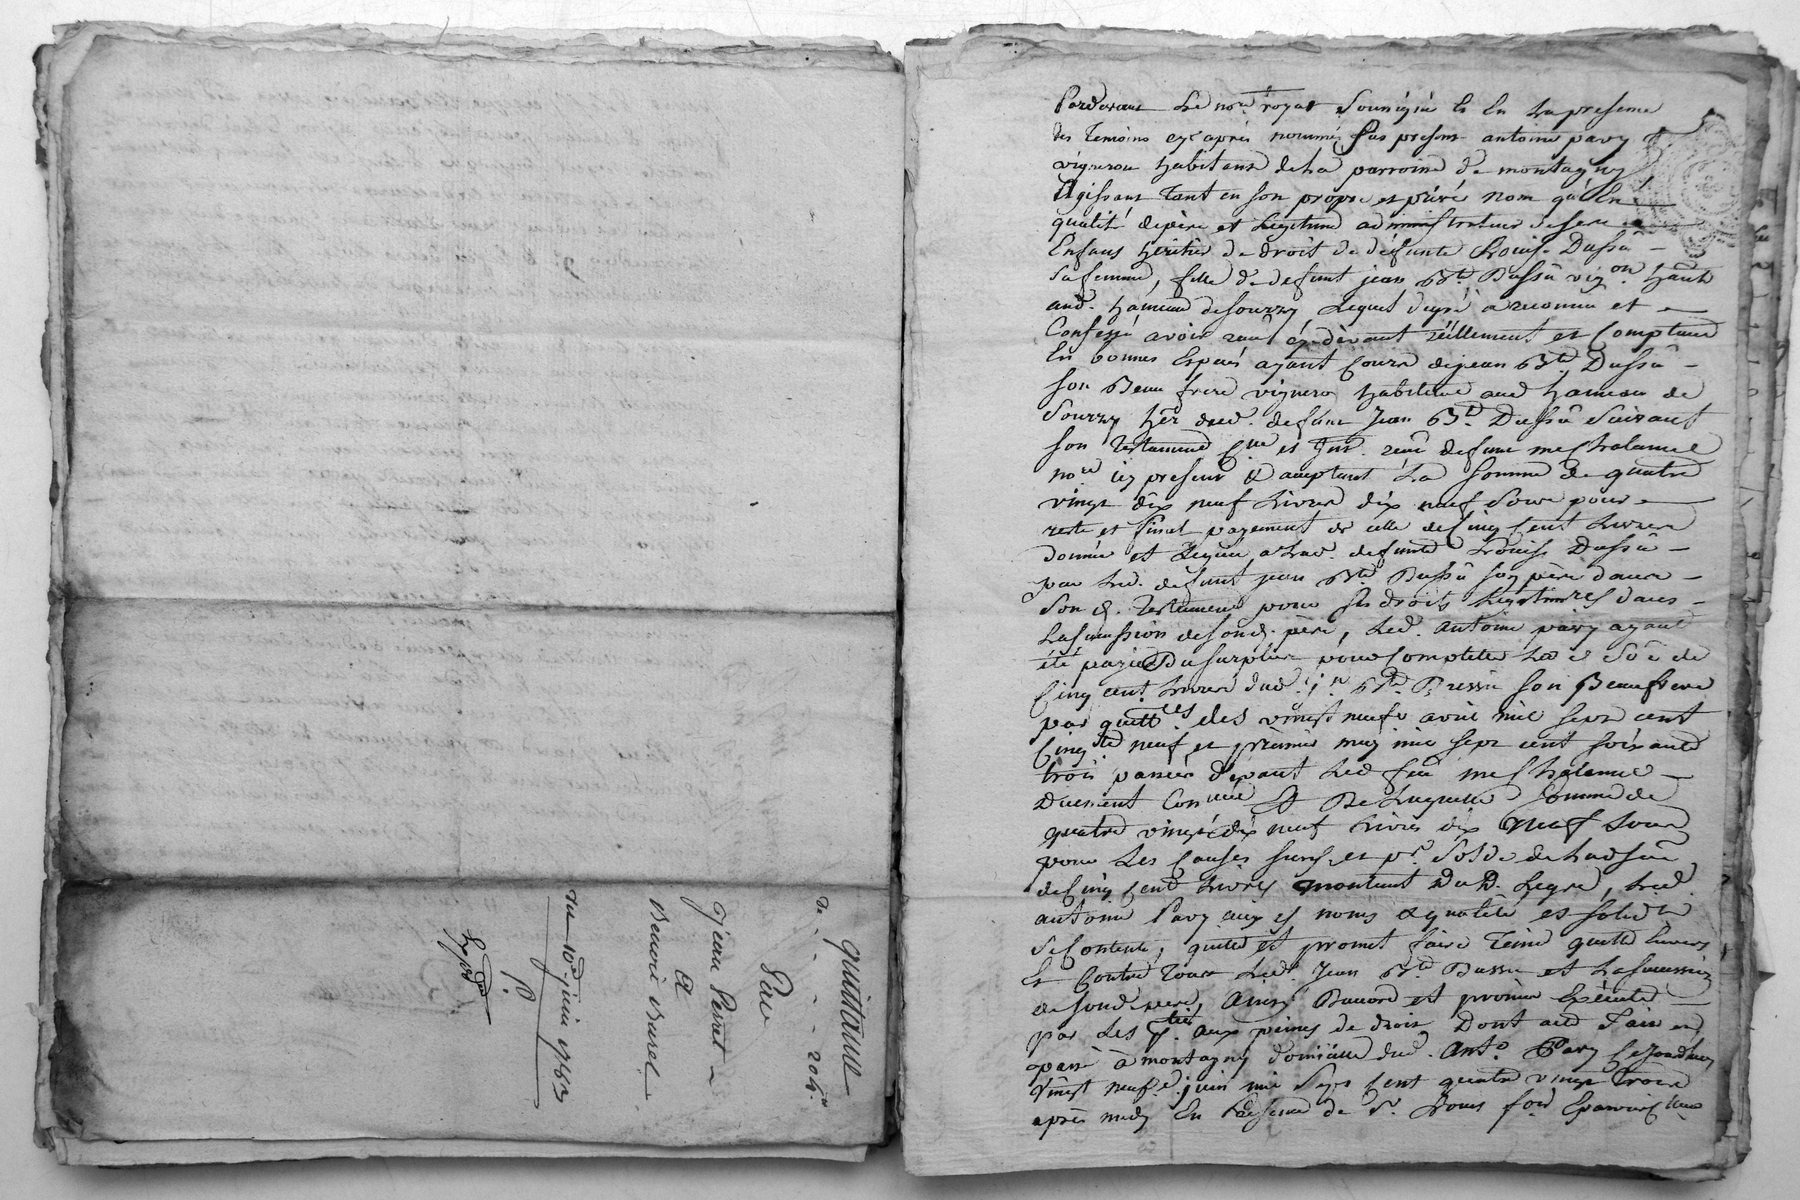 quittance
de . . . 204#
Par
Jean Perret
et
Benoit Burel
du 10e juin 1783
Pardevant Le nore royal Soussigné Et En La presence
des Temoins cy après nommés fus present antoine pavy
vigneron habitant de La parroisse de montagny
Agissant Tant en son propre et privé nom qu'En
qualité de père et Legitime administrateur de ses
Enfans heritiers de droit de defunte Louise Dussû
Sa femme, fille de defunt jean Bte Dussû vigon habt
aud. hameau de Sourzy Lequel de gré a reconnu et
Confessé avoir reçu cy devant réellement et Comptant
En bonnes Especes ayant Cours de jean Bte Dussû
Son Beau frere vigneron habitant aud hameau de
Sourzy hêr dud. defunt Jean Bt Dussû Suivant
Son Testament reçu defunt me Chalamel
nore icy present & acceptant La Somme de quatre
vingt dix neuf Livres dix neuf Sous pour
reste et final payement de celle de Cinq Cent Livres
donnée et Leguée a Lad. defunte Louise Dussû
par Led. defunt jean Bte Dussû Son père dans
Son d. Testament pour Ses droits Legitimaires dans
La Succession de Sond. père, Led. antoine pavy ayant
été payé Du Surplus pour Completer La de So~e de
Cinq cent Livres dud. jn Bte Dussû Son Beaufrere
par quittces des vingt neufe avril mil Sept cent
Cinqte neuf et premier may mil Sept cent Soixante
trois passées devant Led feu me Chalamel
Duement Con De Laquelle Somme de
quatre vingt dix neuf Livres dix Neuf Sous
pour Les Causes Susd. et pr Solde de Lad Sôe
de Cinq Cent Livres montant Du D. Legs, Led.
antoine Pavy aux ds noms & qualité
Se Contente, quitte et promet faire Tenir quitte Envers
Et Contre Tous Led. Jean Bte Dussû et La Succession
de Sond. pere, Ainsy Convenu et promis Executer
par Les Pties aux peines de droit Dont acte Fait et
passé à montagny domicille dud. Ante Pavy Le
Vingt neufe juin mil Sept Cent quatre vingt Trois
après midy En presence de Sr